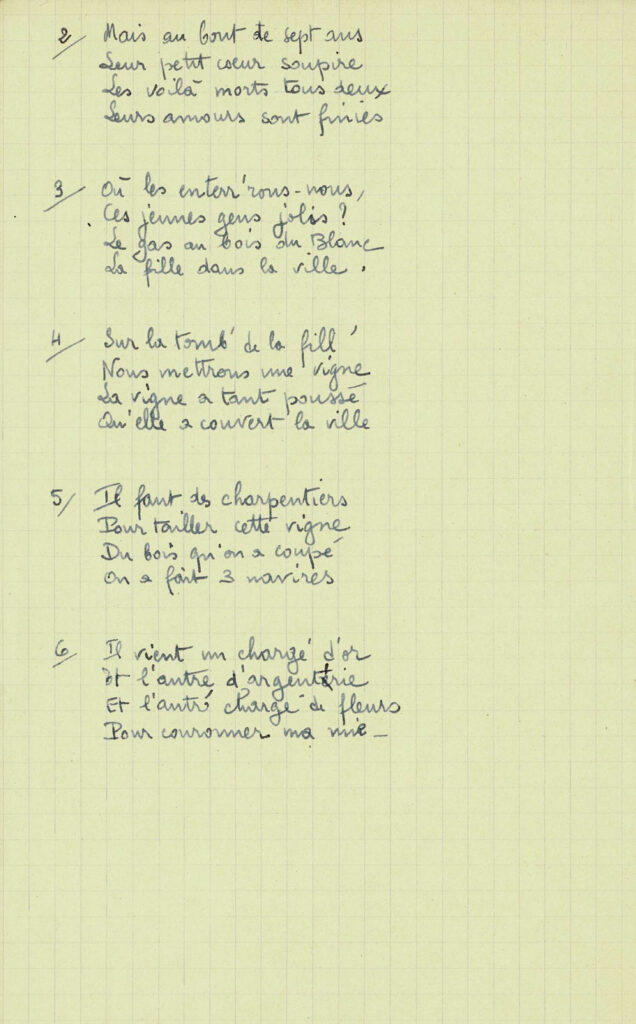 2/ Mais au bout de sept ans
Leur petit coeur soupire
Les voilà morts tous deux
Leurs amours sont finies
3/ Où les enterr'rons-nous,
Ces jeunes gens jolis ?
Le gas au bois du Blanc
La fille dans la ville .
4/ Sur la tomb' de la fill'
Nous mettrons une vigne
La vigne a tant poussé
Qu'elle a couvert la ville
5/ Il faut des charpentiers
Pour tailler cette vigne
Du bois qu'on a coupé
On a fait 3 navires
6/ Il vient un chargé d'or
Et l'autre d'argenterie
Et l'autr' chargé de fleurs
Pour couronner ma mie _